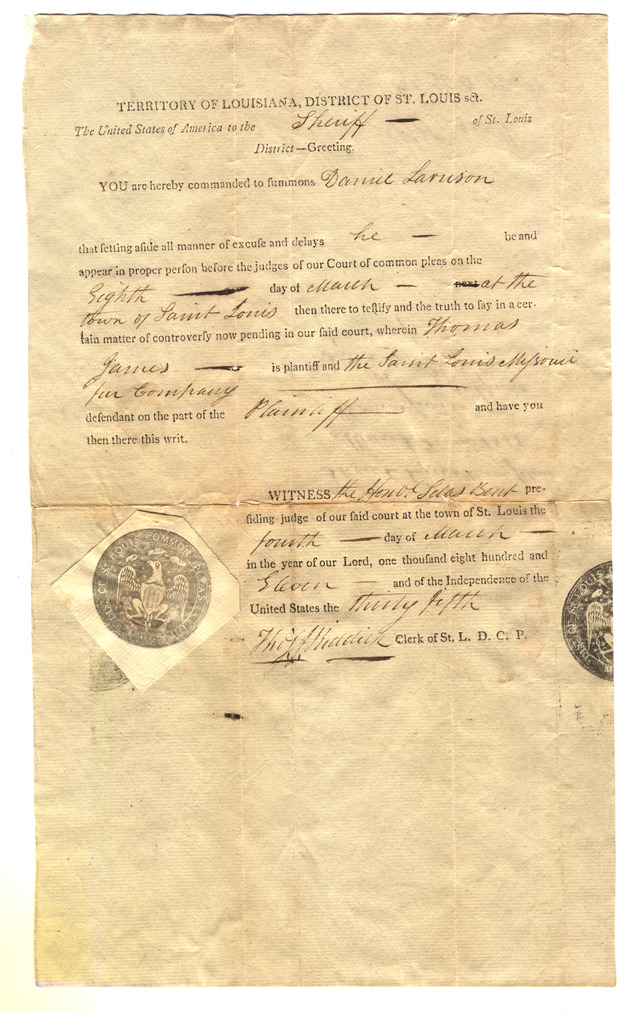 TERRITORY OF LOUISIANA, DISTRICT OF ST. LOUIS sct.
The United States of America to the Sheriff — of St. Louis
District—Greeting.
YOU are hereby commanded to summons Daniel Larrison
that setting aside all manner of excuse and delays he — be and
appear in proper person before the judges of our Court of common pleas on the
Eighth — day of March — next at the
town of Saint Louis then there to testify and the truth to say in a cer-
tain matter of controversy now pending in our said court, wherein Thomas
James — is plantiff and the Saint Louis Missouri
fur Company
defendant on the part of the Plaintiff and have you
then there this writ.
WITNESS the Honol. Silas Bent pre-
siding judge of our said court at the town of St. Louis the
fourth — day of March —
in the year of our Lord, one thousand eight hundred and
Eleven — and of the Independence of the
United States the thirty fifth
Tho. F. Riddick Clerk of St. L. D. C. P.
ST. LOUIS COMMON PLEAS